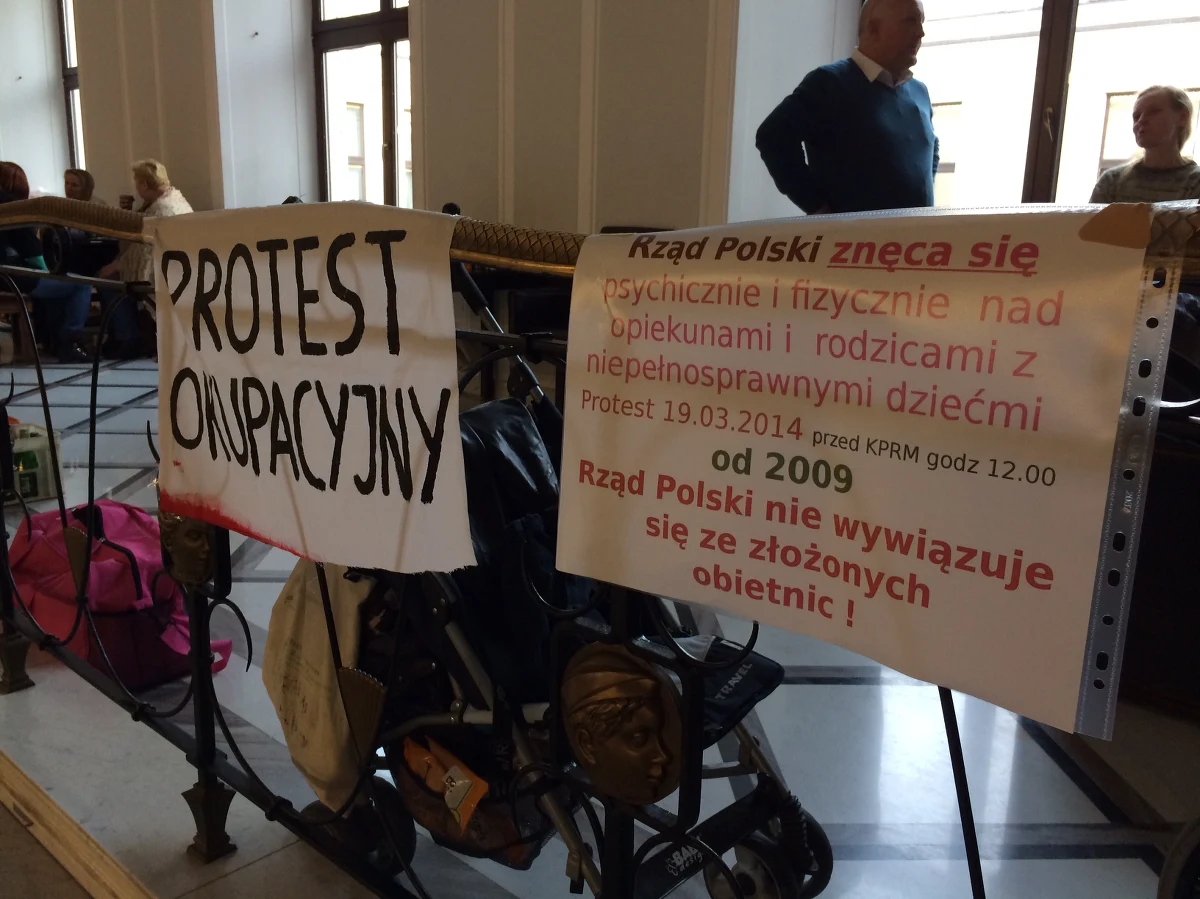 PROTEST
OKUPACYJNY
Rząd Polski znęca się
psychicznie i fizycznie nad
opiekunami i rodzicami z
niepełnosprawnymi dziećmi
Protest 19.03.2014 przed KPRM godz 12.00
od 2009
Rząd Polski nie wywiązuje
się ze złożonych
obietnic !
TRAVEL